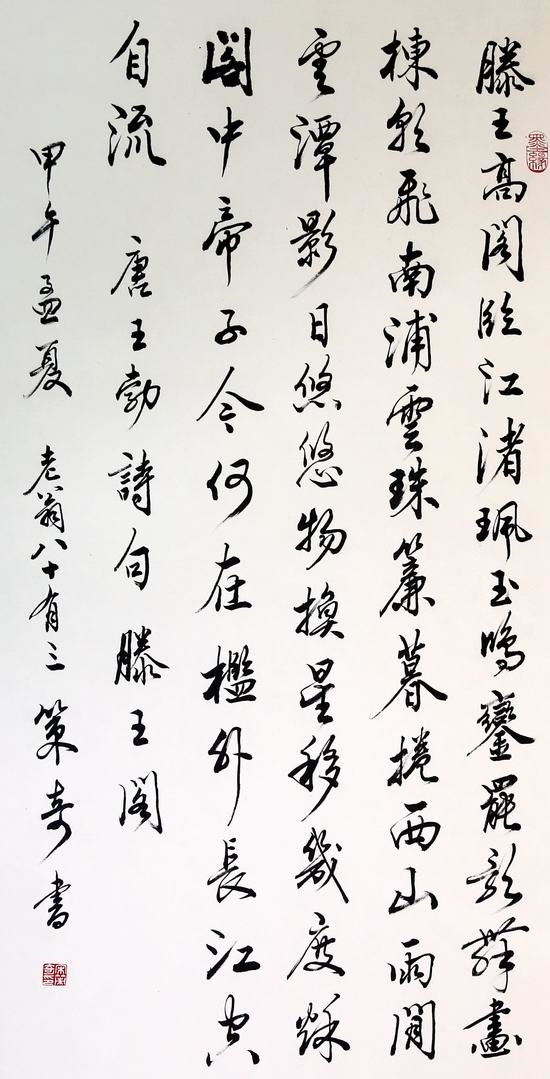 滕王高閣臨江渚珮玉鳴鑾罷歌舞畫
棟朝飛南浦雲珠簾暮捲西山雨閒
雲潭影日悠悠物換星移幾度秋
閣中帝子今何在檻外長江空
自流 唐王勃詩句 滕王閣
甲午孟夏 老翁八十有三 策奇書